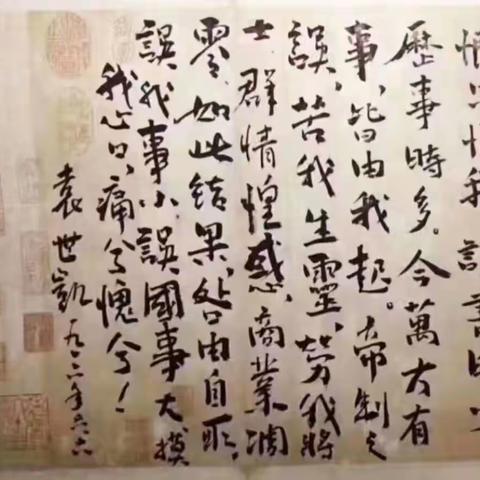 恨只恨我讀書時少
歷事時多。今萬方有
事、皆由我起。帝制之
誤、苦我生靈、勞我將
士、群情惶惑、商業凋
零、如此結果、咎由自取、
誤我事小、誤國事大、摸
我心口、痛兮愧兮！
袁世凱 一九一六年六六